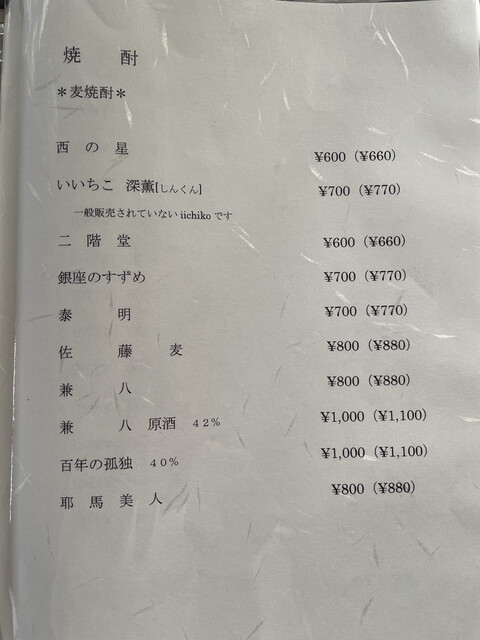 焼 酎
＊麦焼酎＊
西の星 ¥600（¥660）
いいちこ 深薫[しんくん] ¥700（¥770）
一般販売されていない iichiko です
二階堂 ¥600（¥660）
銀座のすずめ ¥700（¥770）
泰 明 ¥700（¥770）
佐 藤 麦 ¥800（¥880）
兼 八 ¥800（¥880）
兼 八 原酒 42% ¥1,000（¥1,100）
百年の孤独 40% ¥1,000（¥1,100）
耶馬美人 ¥800（¥880）